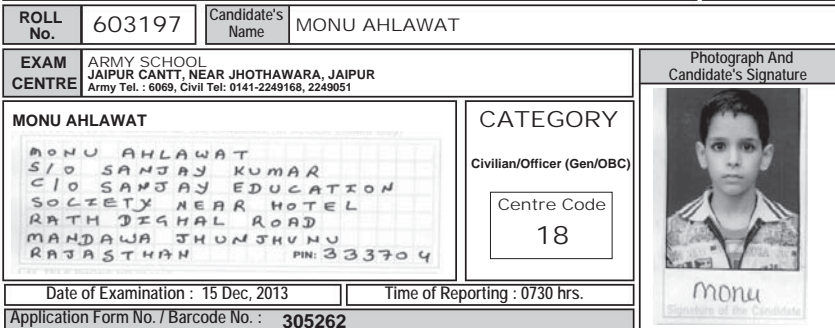 ROLL No. 603197 Candidate's Name MONU AHLAWAT
EXAM CENTRE
ARMY SCHOOL
JAIPUR CANTT, NEAR JHOTHAWARA, JAIPUR
Army Tel. : 6069, Civil Tel: 0141-2249168, 2249051
Photograph And
Candidate's Signature
MONU AHLAWAT
MONU AHLAWAT
S/O SANJAY KUMAR
C/O SANJAY EDUCATION
SOCIETY NEAR HOTEL
RATH DIGHAL ROAD
MANDAWA JHUNJHUNU
RAJASTHAN PIN: 333704
CATEGORY
Civilian/Officer (Gen/OBC)
Centre Code
18
monu
Signature of the Candidate
Date of Examination : 15 Dec, 2013 Time of Reporting : 0730 hrs.
Application Form No. / Barcode No. : 305262